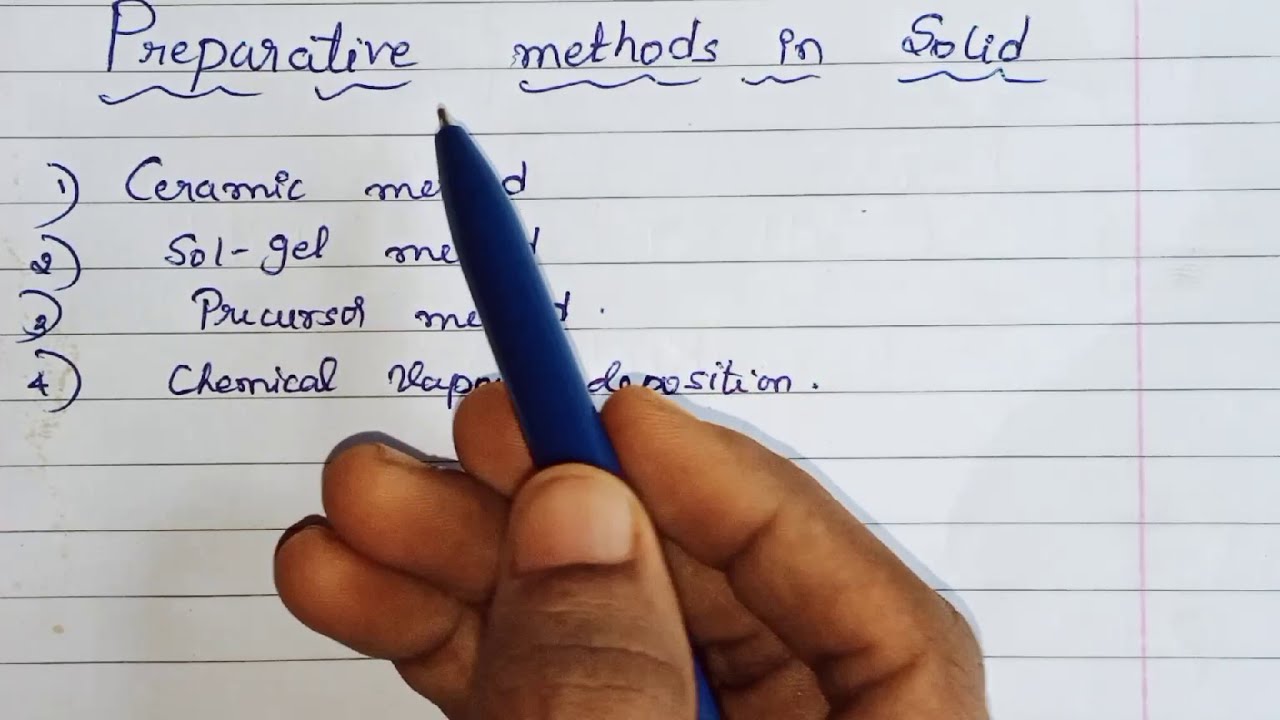 Preparative methods in Solid
1) Ceramic method
2) Sol-gel method
3) Precursor method.
4) Chemical Vapour deposition.